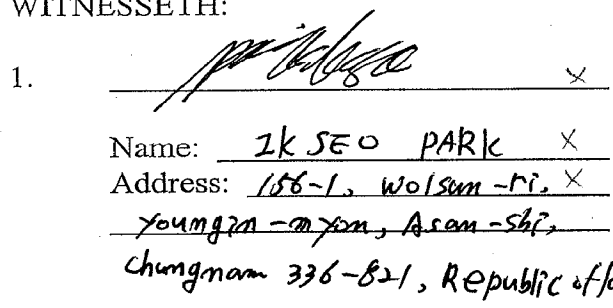 WITNESSETH:
1. x
Name: IK SEO PARK x
Address: 156-1, Wolsun-ri, x
Youngin-myon, Asan-shi,
Chungnam 336-821, Republic of